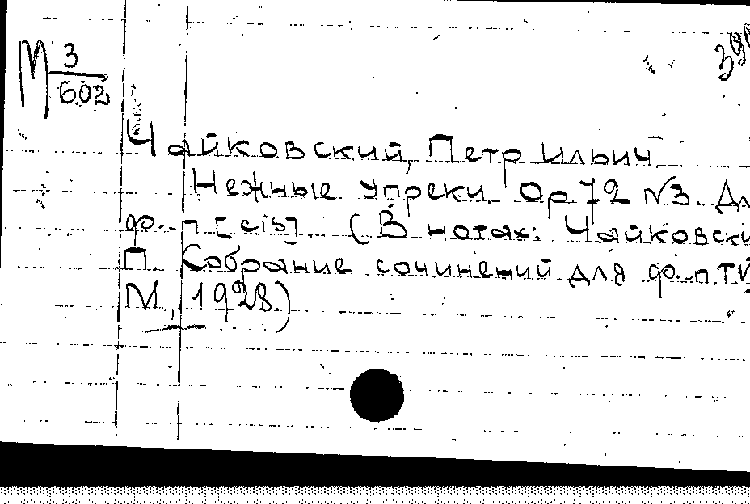 М 3/602
Чайковский, Петр Ильич
Нежные упреки. Op 72 №3. Дл
ф.-п [cis]. (В нотах: Чайковски
П. Собрание сочинений для ф.п. TV
М., 1928.)